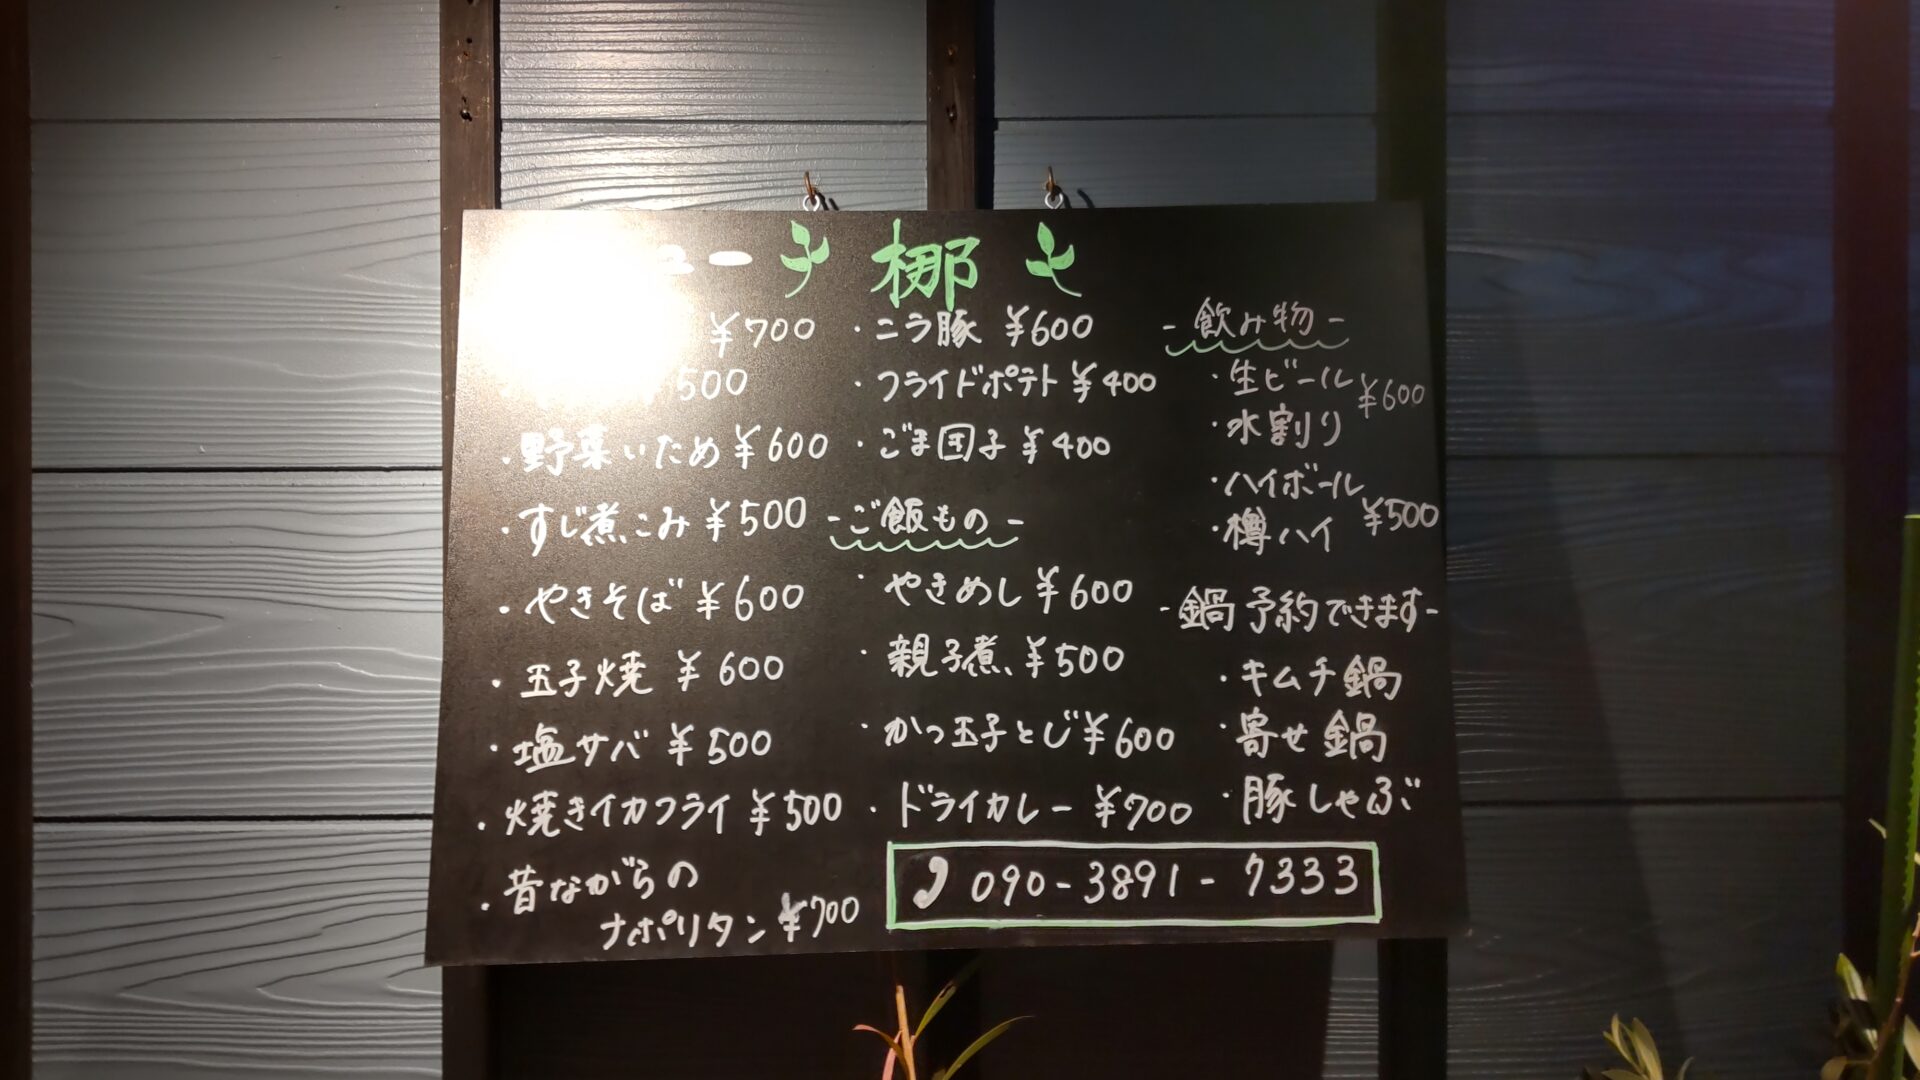 ュー 梛
¥700
500
・野菜いため ¥600
・すじ煮こみ ¥500
・やきそば ¥600
・玉子焼 ¥600
・塩サバ ¥500
・焼きイカフライ ¥500
・昔ながらの
ナポリタン ¥700
・ニラ豚 ¥600
・フライドポテト ¥400
・ごま団子 ¥400
-ご飯もの-
・やきめし ¥600
・親子煮 ¥500
・かつ玉子とじ ¥600
・ドライカレー ¥700
-飲み物-
・生ビール ¥600
・水割り
・ハイボール ¥500
・樽ハイ
-鍋予約できます-
・キムチ鍋
・寄せ鍋
・豚しゃぶ
090-3891-7333